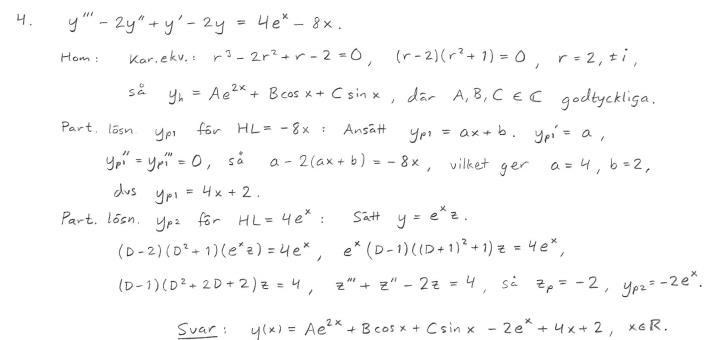 4. y''' - 2y'' + y' - 2y = 4eˣ - 8x.
Hom: Kar.ekv.: r³ - 2r² + r - 2 = 0, (r-2)(r²+1) = 0, r = 2, ±i,
så yₕ = Ae²ˣ + B cos x + C sin x, där A, B, C ∈ ℂ godtyckliga.
Part. lösn. yₚ₁ för HL = -8x : Ansätt yₚ₁ = ax + b. yₚ₁' = a,
yₚ₁'' = yₚ₁''' = 0, så a - 2(ax + b) = -8x, vilket ger a = 4, b = 2,
dvs yₚ₁ = 4x + 2.
Part. lösn. yₚ₂ för HL = 4eˣ : Sätt y = eˣz.
(D-2)(D²+1)(eˣz) = 4eˣ, eˣ(D-1)((D+1)²+1)z = 4eˣ,
(D-1)(D²+2D+2)z = 4, z''' + z'' - 2z = 4, så zₚ = -2, yₚ₂ = -2eˣ.
Svar: y(x) = Ae²ˣ + B cos x + C sin x - 2eˣ + 4x + 2, x∈ℝ.